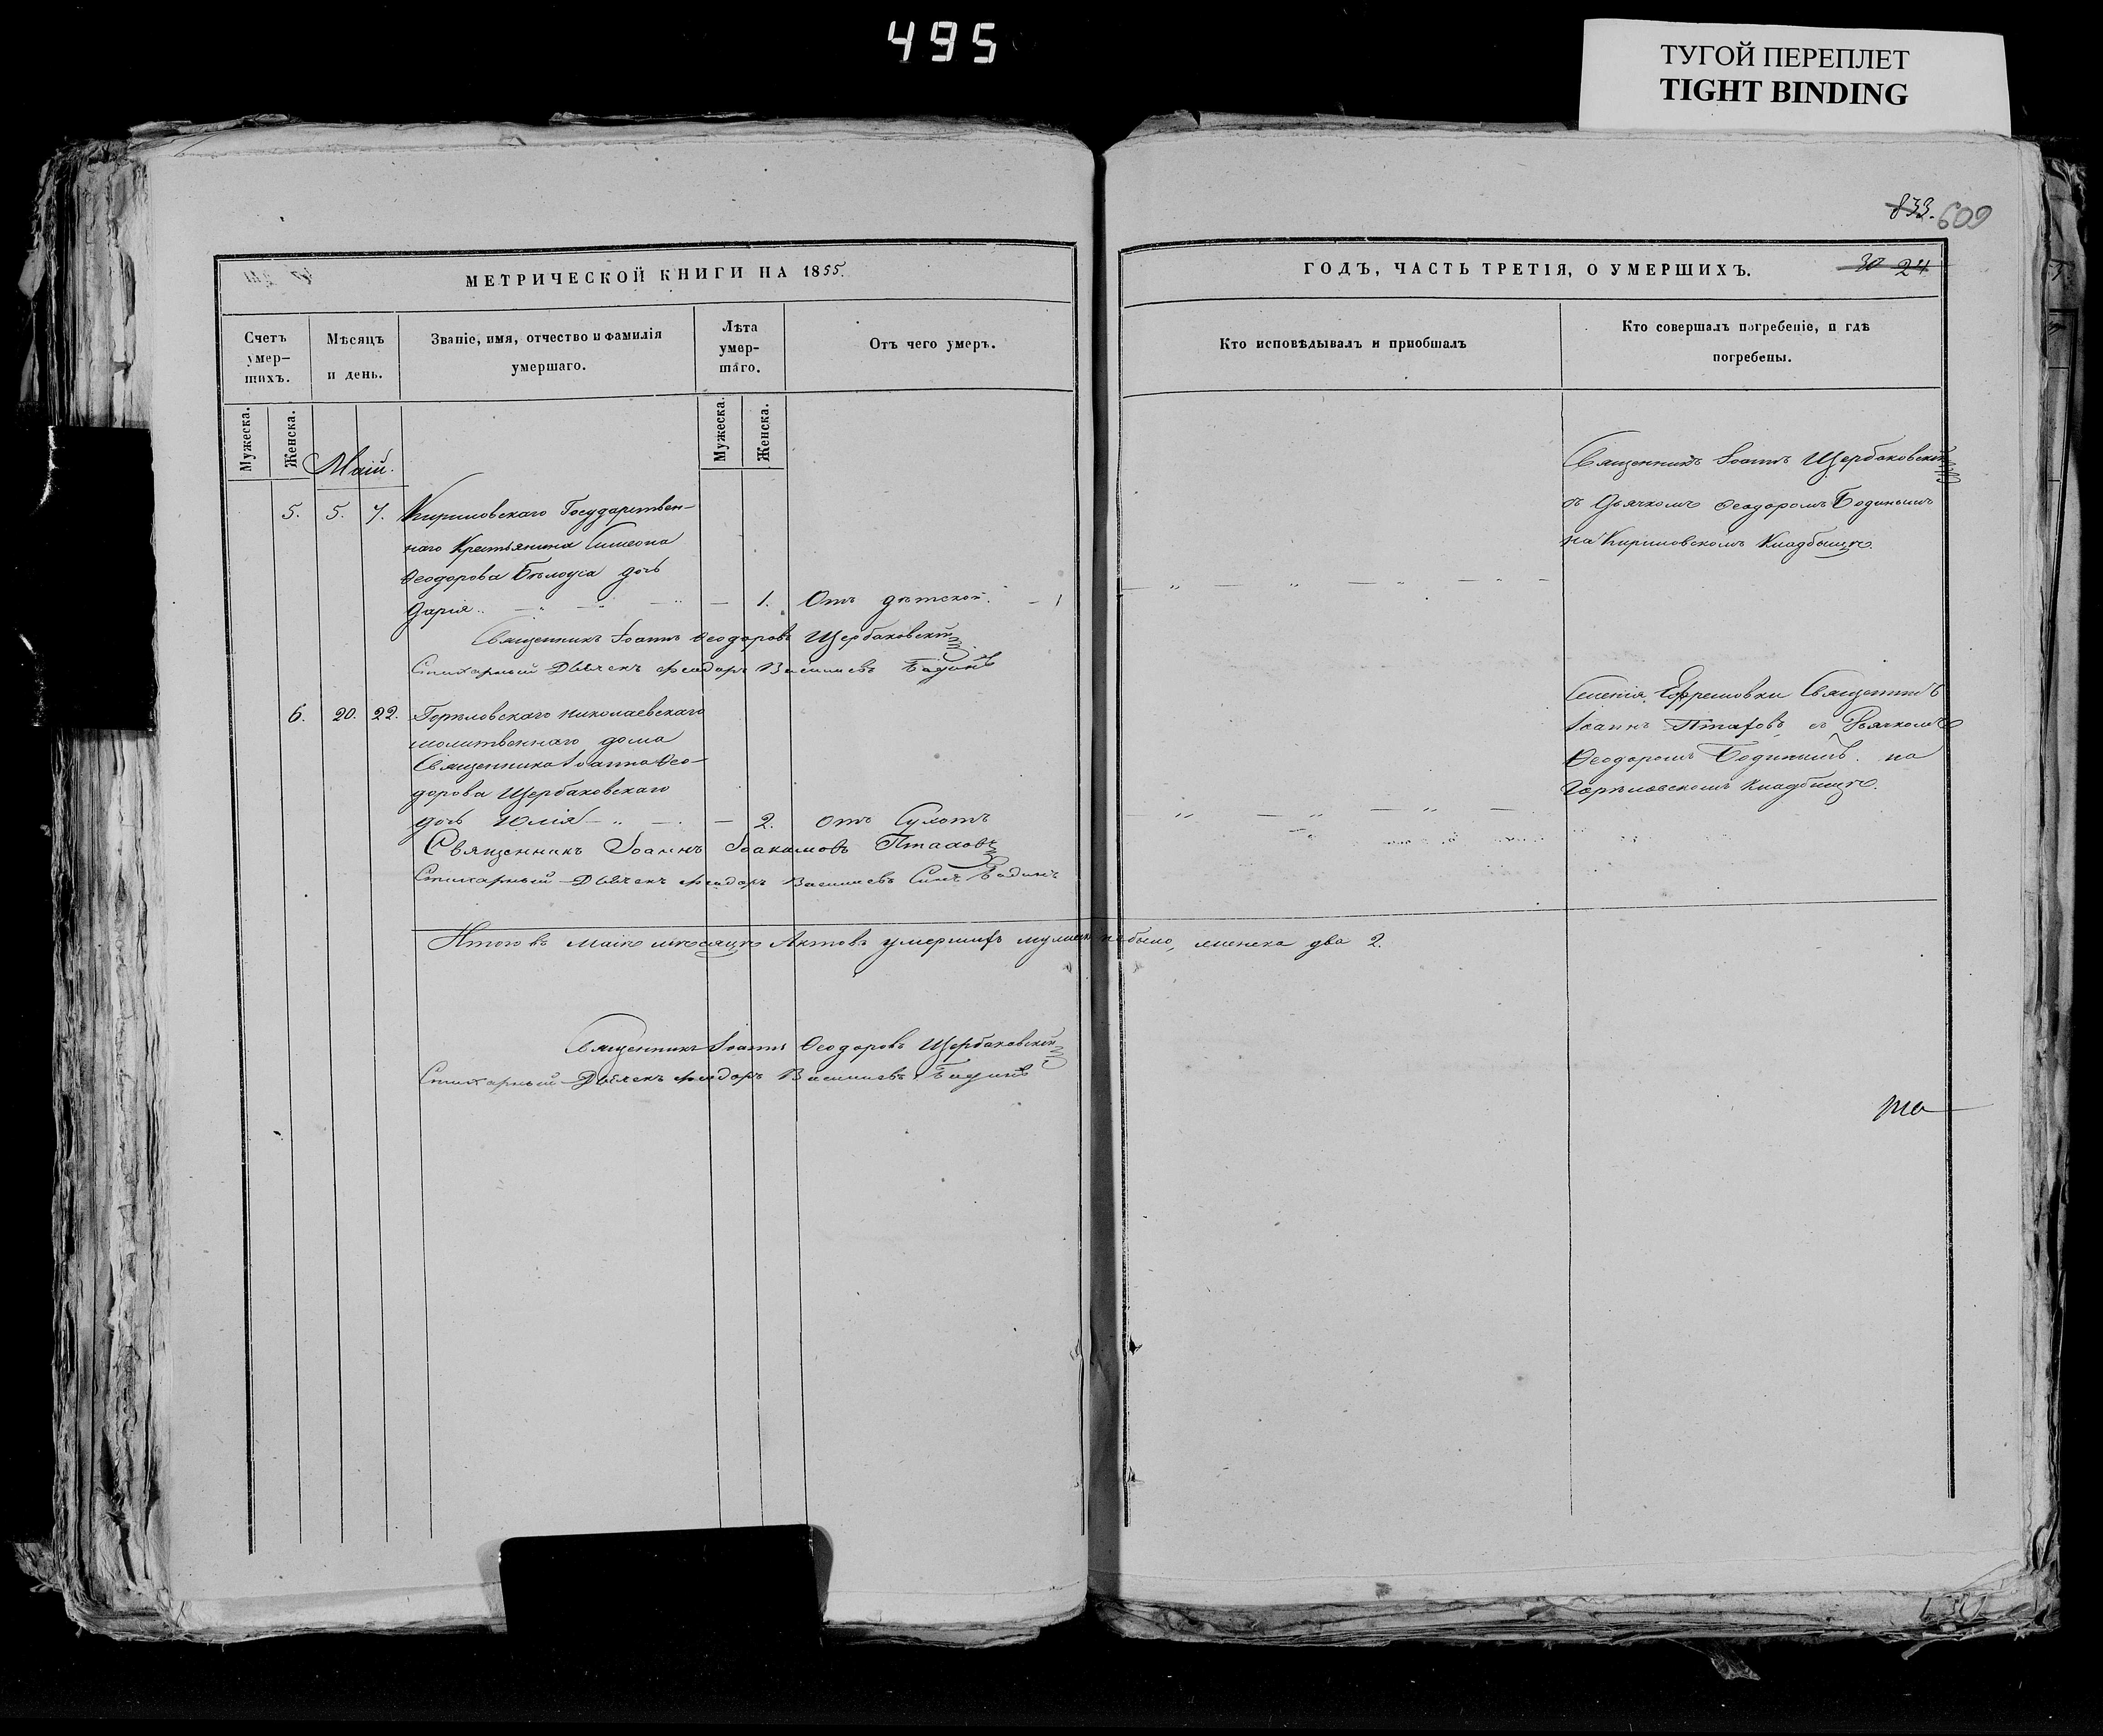 495
ТУГОЙ ПЕРЕПЛЕТ
TIGHT BINDING
833. 609
МЕТРИЧЕСКОЙ КНИГИ НА 1855.
Счетъ умер-шихъ.
Мѣсяцъ и день.
Званіе, имя, отчество и фамилія умершаго.
Лѣта умер-шаго.
Отъ чего умеръ.
Мужеска.
Женска.
Мужеска.
Женска.
Маій.
5. 5. 7. Кириловскаго Государствен-
наго Крестьянина Симеона
Ѳеодорова Бѣлоуса дочь
Дарія 1. Отъ дѣтской.
Священникъ Іоаннъ Ѳеодоровъ Щербаковскій
Стихарный Дьячекъ Феодоръ Васильевъ
6. 20. 22. Горѣловскаго Николаевскаго
молитвеннаго дома
Священника Іоанна Ѳео-
дорова Щербаковскаго
дочь Юлія 2. отъ Сухотъ
Священникъ Іоаннъ Іоакимовъ Птаховъ
Стихарный Дьячекъ Феодоръ Васильевъ Сынъ
Итого въ Маіѣ мѣсяцѣ Актовъ умершихъ мужеска небыло, женска два 2.
Священникъ Іоаннъ Ѳеодоровъ Щербаковскій
Стихарный Дьячекъ Феодоръ Васильевъ
ГОДЪ, ЧАСТЬ ТРЕТІЯ, О УМЕРШИХЪ.
30 24
Кто исповѣдывалъ и пріобщалъ
Кто совершалъ погребеніе, и гдѣ погребены.
Священникъ Іоаннъ Щербаковскій
съ Дьячкомъ Ѳеодоромъ Бодинымъ
на Кириловскомъ Кладбищѣ.
Селенія Ефремовки Священникъ
Іоаннъ Птаховъ, съ Дьячкомъ
Ѳеодоромъ Бодинымъ на
Горѣловскомъ Кладбищѣ.